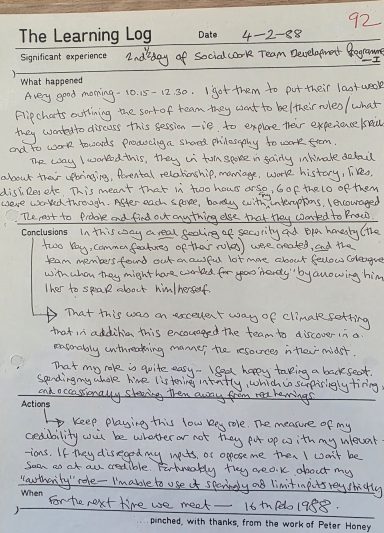 92
The Learning Log
Date 4-2-88
Significant experience 2nd ½ day of Social Work Team Development Programme - I
What happened
A very good morning - 10.15 - 12.30. I got them to put their last week
Flipcharts outlining the sort of team they want to be/their rules/what
they wanted to discuss this session - ie to explore their experience/skills
and to work towards producing a shared philosophy to work from.
The way I worked this, they in turn spoke in fairly intimate detail
about their upbringing, parental relationship, marriage, work history, likes,
dislikes etc. This meant that in two hours or so, 6 of the 10 of them
were worked through. After each spoke, barely with interruptions, I encouraged
the rest to probe and find out anything else that they wanted to know.
Conclusions In this way a real feeling of security and open honesty (the
two key, common features of their rules) were created, and the
team members found out an awful lot more about fellow colleagues
with whom they might have worked for years "nicely" by allowing him
/her to speak about him/herself.
That this was an excellent way of climate setting
that in addition this encouraged the team to discover in a
reasonably unthreatening manner, the resources in their midst.
That my role is quite easy - I feel happy taking a back seat.
Spending my whole time listening intently, which is surprisingly tiring
and occasionally steering them away from red herrings
Actions
Keep playing this low key role. The measure of my
credibility will be whether or not they put up with my intervent
-ions. If they disregard my inputs, or oppose me then I won't be
seen as at all credible. Fortunately they are O.K about my
"authority" role - I'm able to use it sparingly and limit inputs very strictly
When For the next time we meet - 16th Feb 1988.
....pinched, with thanks, from the work of Peter Honey